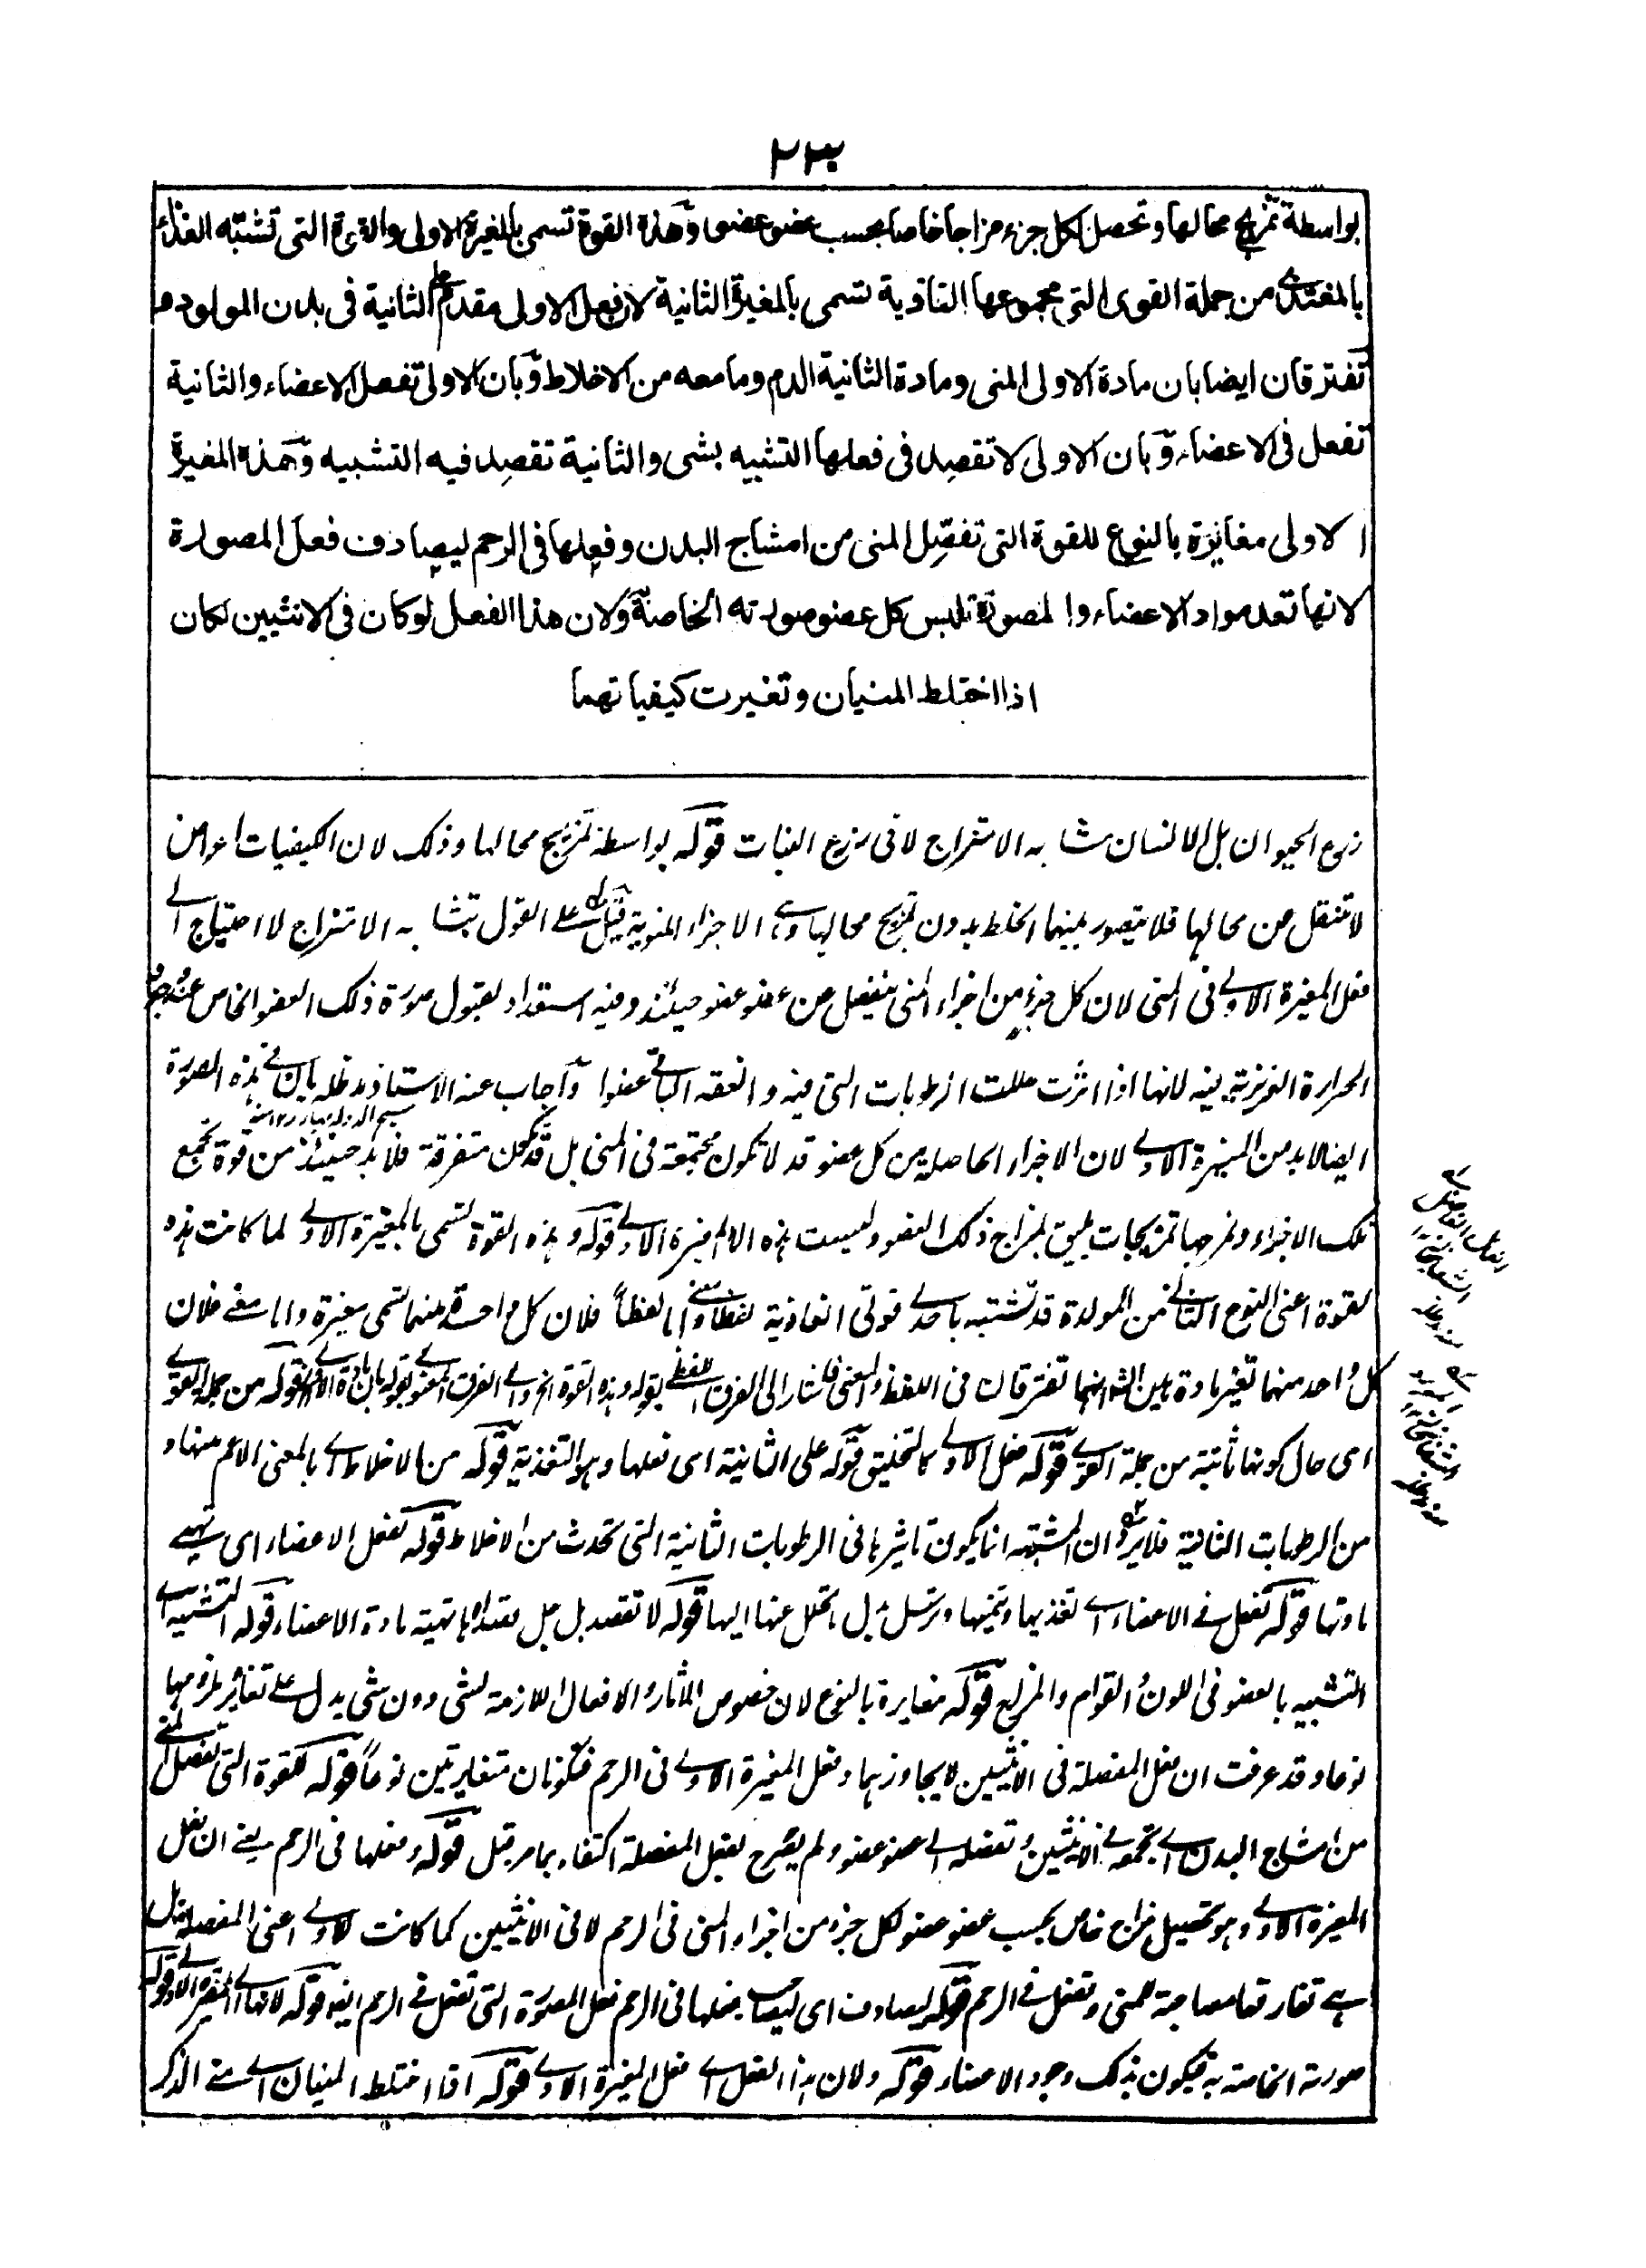 ٢٣٠
بواسطة تمزيج محالها وتحصل لكل جزء مزاجا خاصا بحسب عضو عضو وهذه القوة تسمى بالمغيرة الاولى والقوة التى تشبّه الغذاء
بالمغتذى من جملة القوى التى مجموعها الغاذية تسمى بالمغيرة الثانية لان فعل الاولى مقدم على الثانية فى بدن المولود و
تفترقان ايضا بان مادة الاولى المنى ومادة الثانية الدم وما معه من الاخلاط وبان الاولى تفعل الاعضاء والثانية
تفعل فى الاعضاء وبان الاولى لا تقصد فى فعلها التشبيه بشى والثانية تقصد فيه التشبيه وهذه المغيرة
الاولى مغايرة بالنوع للقوة التى تفصّل المنى من امشاج البدن وفعلها فى الرحم ليصادف فعل المصورة
لانها تعد مواد الاعضاء والمصورة تلبس كل عضو صورته الخاصة ولان هذا الفعل لو كان فى الانثيين لكان
اذا اختلط المنيان وتغيرت كيفياتهما
زرع الحيوان بل الانسان متشابه الامتزاج لا فى زرع النبات قوله بواسطة تمزيج محالها وذلك لان الكيفيات اعراض
لا تنتقل عن محالها فلا يتصور بينهما الخلط بدون تمزيج محالها وهى الاجزاء المنوية قيل على القول بتشابه الامتزاج لا احتياج الى
فعل المغيرة الاولى فى المنى لان كل جزء من اجزاء المنى ينفصل عن عضو عضو حينئذ وفيه استعداد لقبول صورة ذلك العضو الخاص عند
الحرارة الغريزية فيه لانها اذا اثرت حللت الرطوبات التى فيه وانعقد الباقى عضوا وأجاب عنه الاستاذ مد ظله بان فى هذه الصورة
ايضا لا بد من المغيرة الاولى لان الاجزاء الحاصلة من كل عضو قد لا تكون مجتمعة فى المنى بل قد تكون متفرقة فلا بد حينئذ من قوة تجمع
تلك الاجزاء وتمزجها تمزيجات يليق بمزاج ذلك العضو وليست هذه الا المغيرة الاولى قوله وهذه القوة تسمى بالمغيرة الاولى لما كانت هذه
القوة اعنى النوع الثانى من المولدة قد تشتبه باحدى قوتى الغاذية لفظا ومعنى اما لفظاً فلان كل واحدة منهما تسمى مغيرة واما معنى فلان
كل واحد منهما تغير مادة بين انهما تفترقان فى اللفظ والمعنى فاشار الى الفرق اللفظى بقوله وهذه القوة الخ والى الفرق المعنوى بقوله بان مادة الاولى قوله من جملة القوى
اى حال كونها ثابتة من جملة القوى قوله فعل الاولى كالتخليق قوله على الثانية اى فعلها وهو التغذية قوله من الاخلاط اى بالمعنى الاعم منها و
من الرطوبات الثانية فلا يرد ان المشبهة انما يكون تاثيرها فى الرطوبات الثانية التى تحدث من الاخلاط قوله تفعل الاعضاء اى تهيئ
مادتها قوله تفعل فى الاعضاء اى تغذيها وتنميها وترسل بدل ما تحلل عنها اليها قوله لا تقصد بل جل مقصدها تهية مادة الاعضاء قوله التشبيه اى
التشبيه بالعضو فى اللون والقوام والمزاج قوله مغايرة بالنوع لان خصوص الآثار والافعال اللازمة لشى دون شى يدل على تغاير ملزومها
نوعا وقد عرفت ان فعل المفصلة فى الانثيين لا يجاوزهما وفعل المغيرة الاولى فى الرحم فتكونان متغايرتين نوعاً قوله للقوة التى تفصل المنى
من امشاج البدن اى تجمعه فى الانثيين وتفصله الى عضو عضو ولم يصرح بفعل المفصلة اكتفاء بما مر قبل قوله وفعلها فى الرحم يعنى ان فعل
المغيرة الاولى وهو تحصيل مزاج خاص بحسب عضو عضو لكل جزء من اجزاء المنى فى الرحم لا فى الانثيين كما كانت الاولى اعنى المفصلة بل
هى تفارقها مصاحبة للمنى وتفعل فى الرحم قوله ليصادف اى ليصاحب فعلها فى الرحم فعل المصورة التى تفعل فى الرحم ايضا قوله لانها اى المغيرة الاولى قوله
صورته الخاصة به فيكون بذلك وجود الاعضاء قوله ولان هذا الفعل اى فعل المغيرة الاولى قوله اذا اختلط المنيان اى منى الذكر